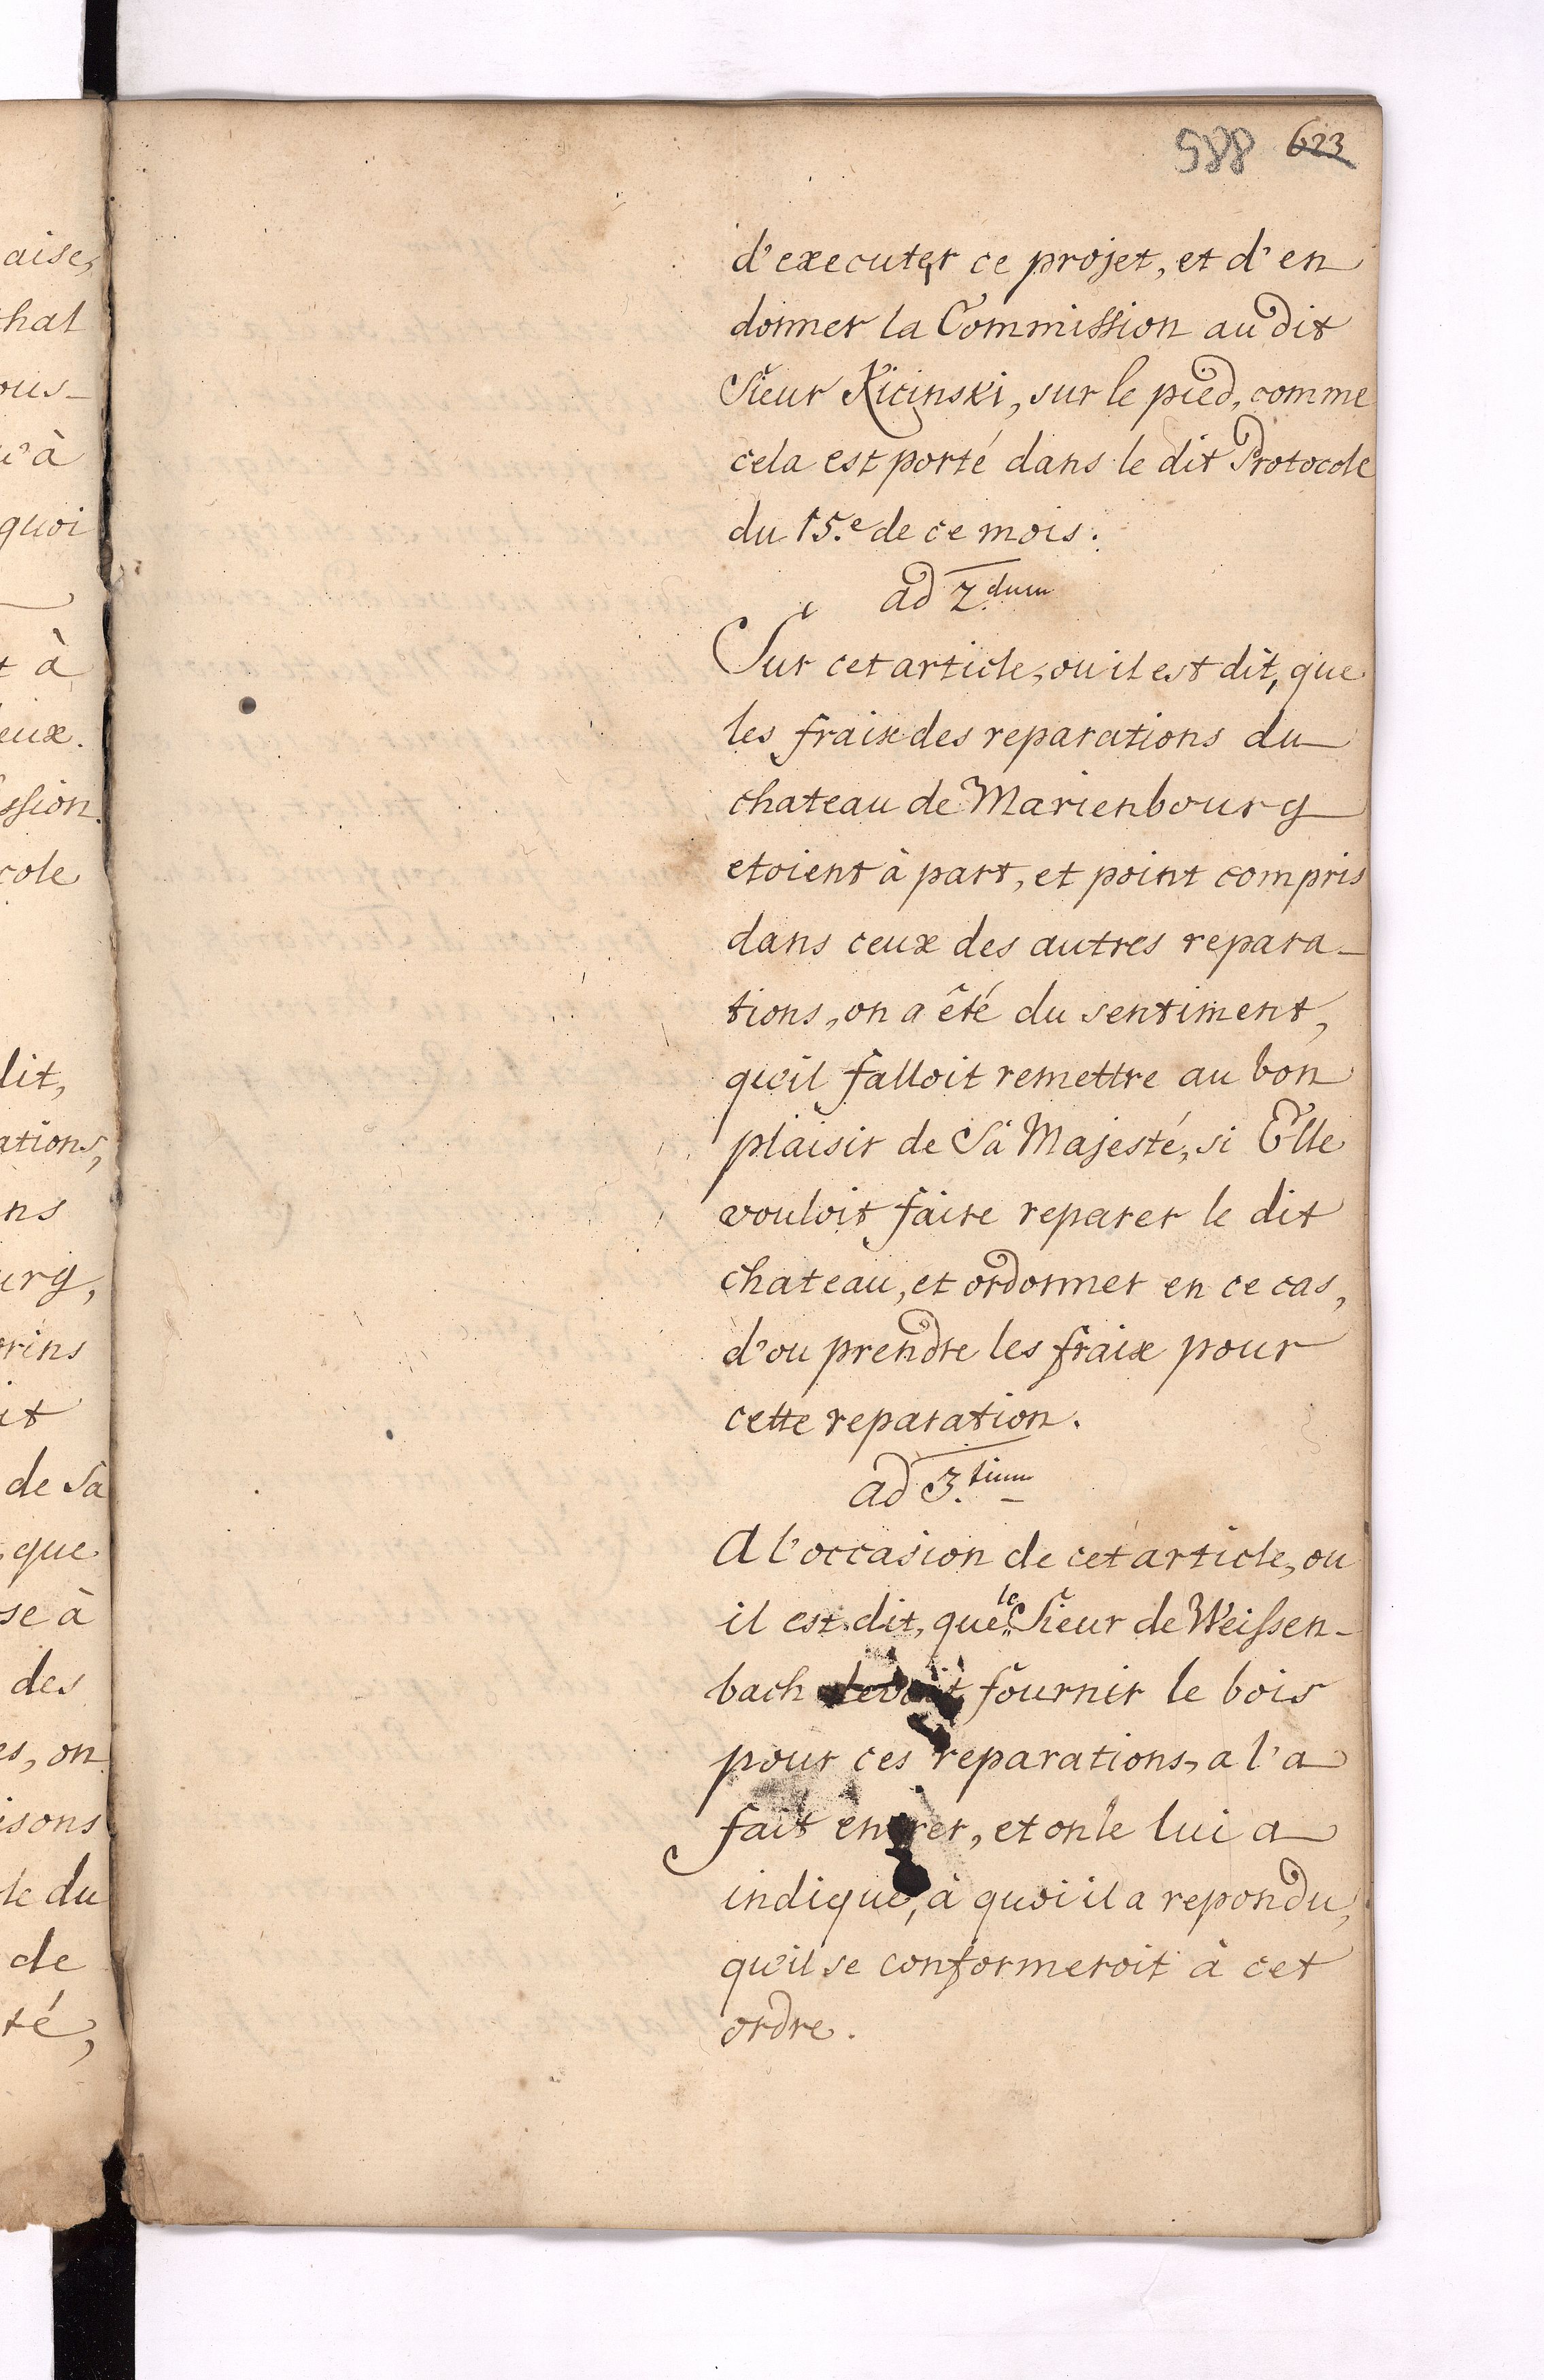 588 623
d'executer ce projet, et d'en
donner la Commission au dit
Sieur Kicinski, sur le pied, comme
cela est porté dans le dit Protocole
du 15.e de ce mois.
ad 2.dum
Sur cet article, ou il est dit, que
les fraix des reparations du
chateau de Marienbourg
etoient à part, et point compris
dans ceux des autres repara-
tions, on a été du sentiment,
qu'il falloit remettre au bon
plaisir de Sa Majesté, si Elle
vouloit faire reparer le dit
chateau, et ordonner en ce cas,
d'ou prendre les fraix pour
cette reparation.
ad 3.tium
A l'occasion de cet article, ou
il est dit, que le Sieur de Weissen-
bach devoit fournir le bois
pour ces reparations, a l'a
fait entrer, et on le lui a
indiqué, à quoi il a repondu,
qu'il se conformeroit à cet
ordre.
aise,
thal
ous-
u'à
quoi
t à
eux.
ssion.
cole
dit,
ations,
ns
urg,
orins
it
de Sa
que
se à
des
es, on
isons
le du
de
té,